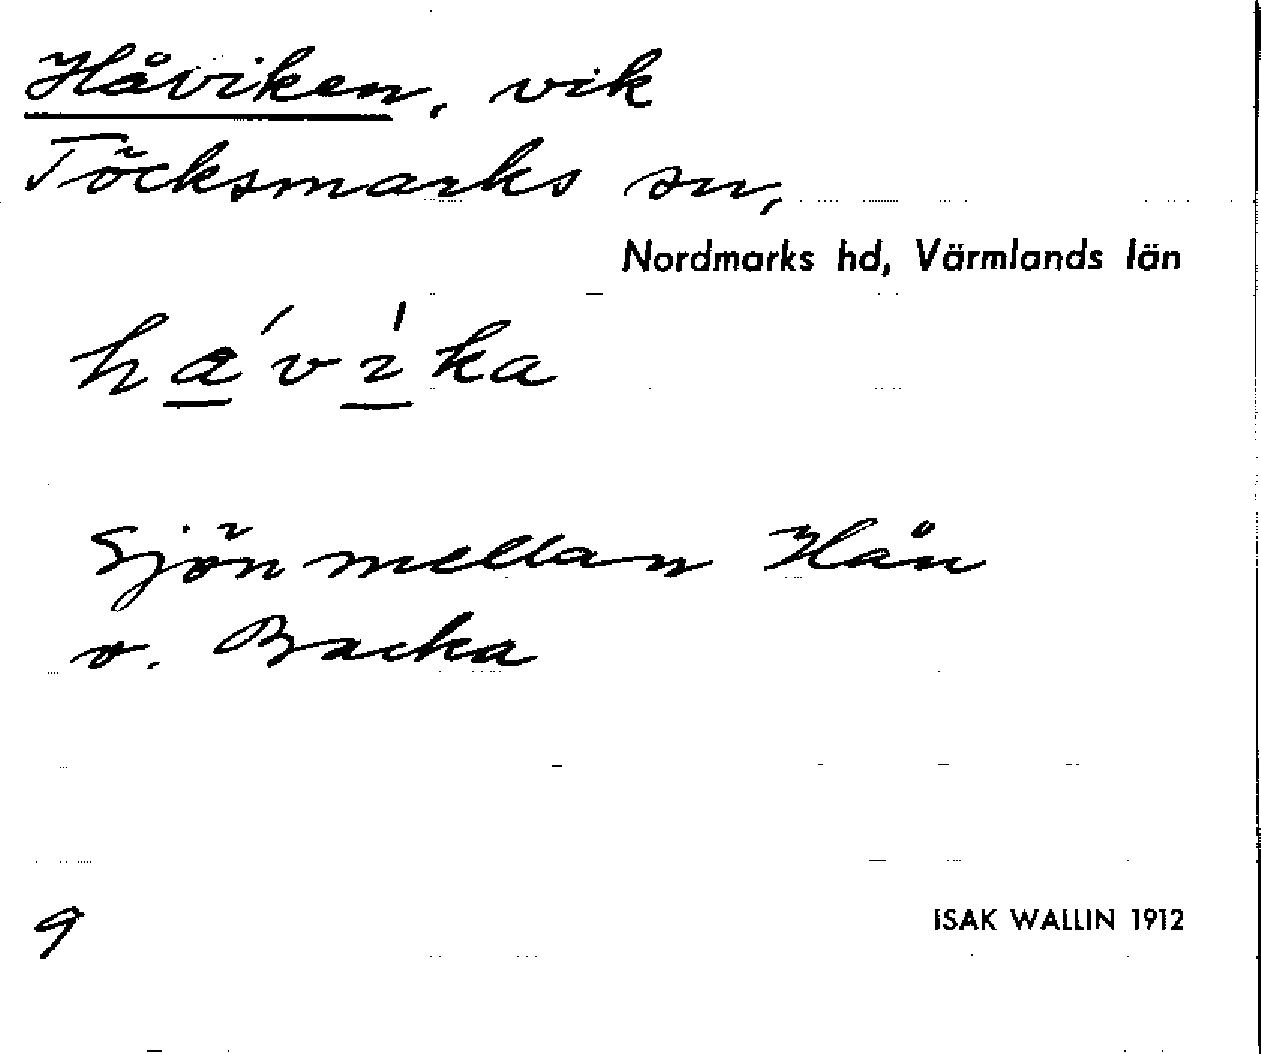 Håviken, vik
Töcksmarks sn,
Nordmarks hd, Värmlands län
ha̲´vi̲̍ka
Sjön mellan Hån
o. Backa
9
ISAK WALLIN 1912